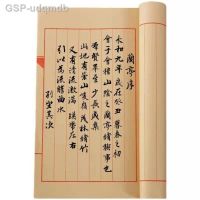 GSP-udqmdb
蘭亭序
永和九年歲在癸丑暮春之初
會于會稽山陰之蘭亭脩禊事也
羣賢畢至少長咸集
此地有崇山峻領茂林脩竹
又有清流激湍暎帶左右
引以為流觴曲水
列坐其次